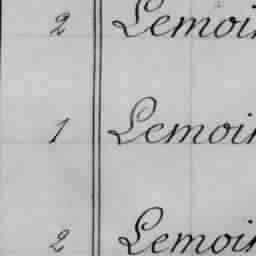 2 Lemoin
1 Lemoin
2 Lemoin